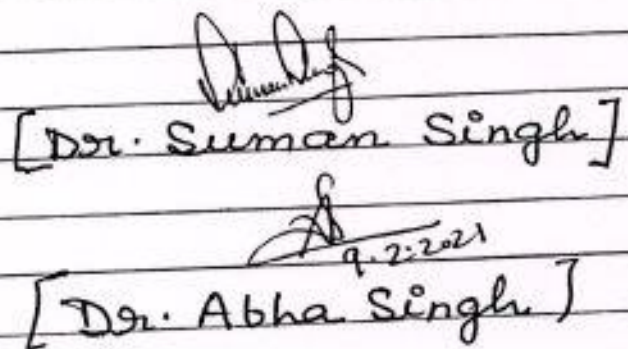 [Dr. Suman Singh]
9.2.2021
[Dr. Abha Singh]